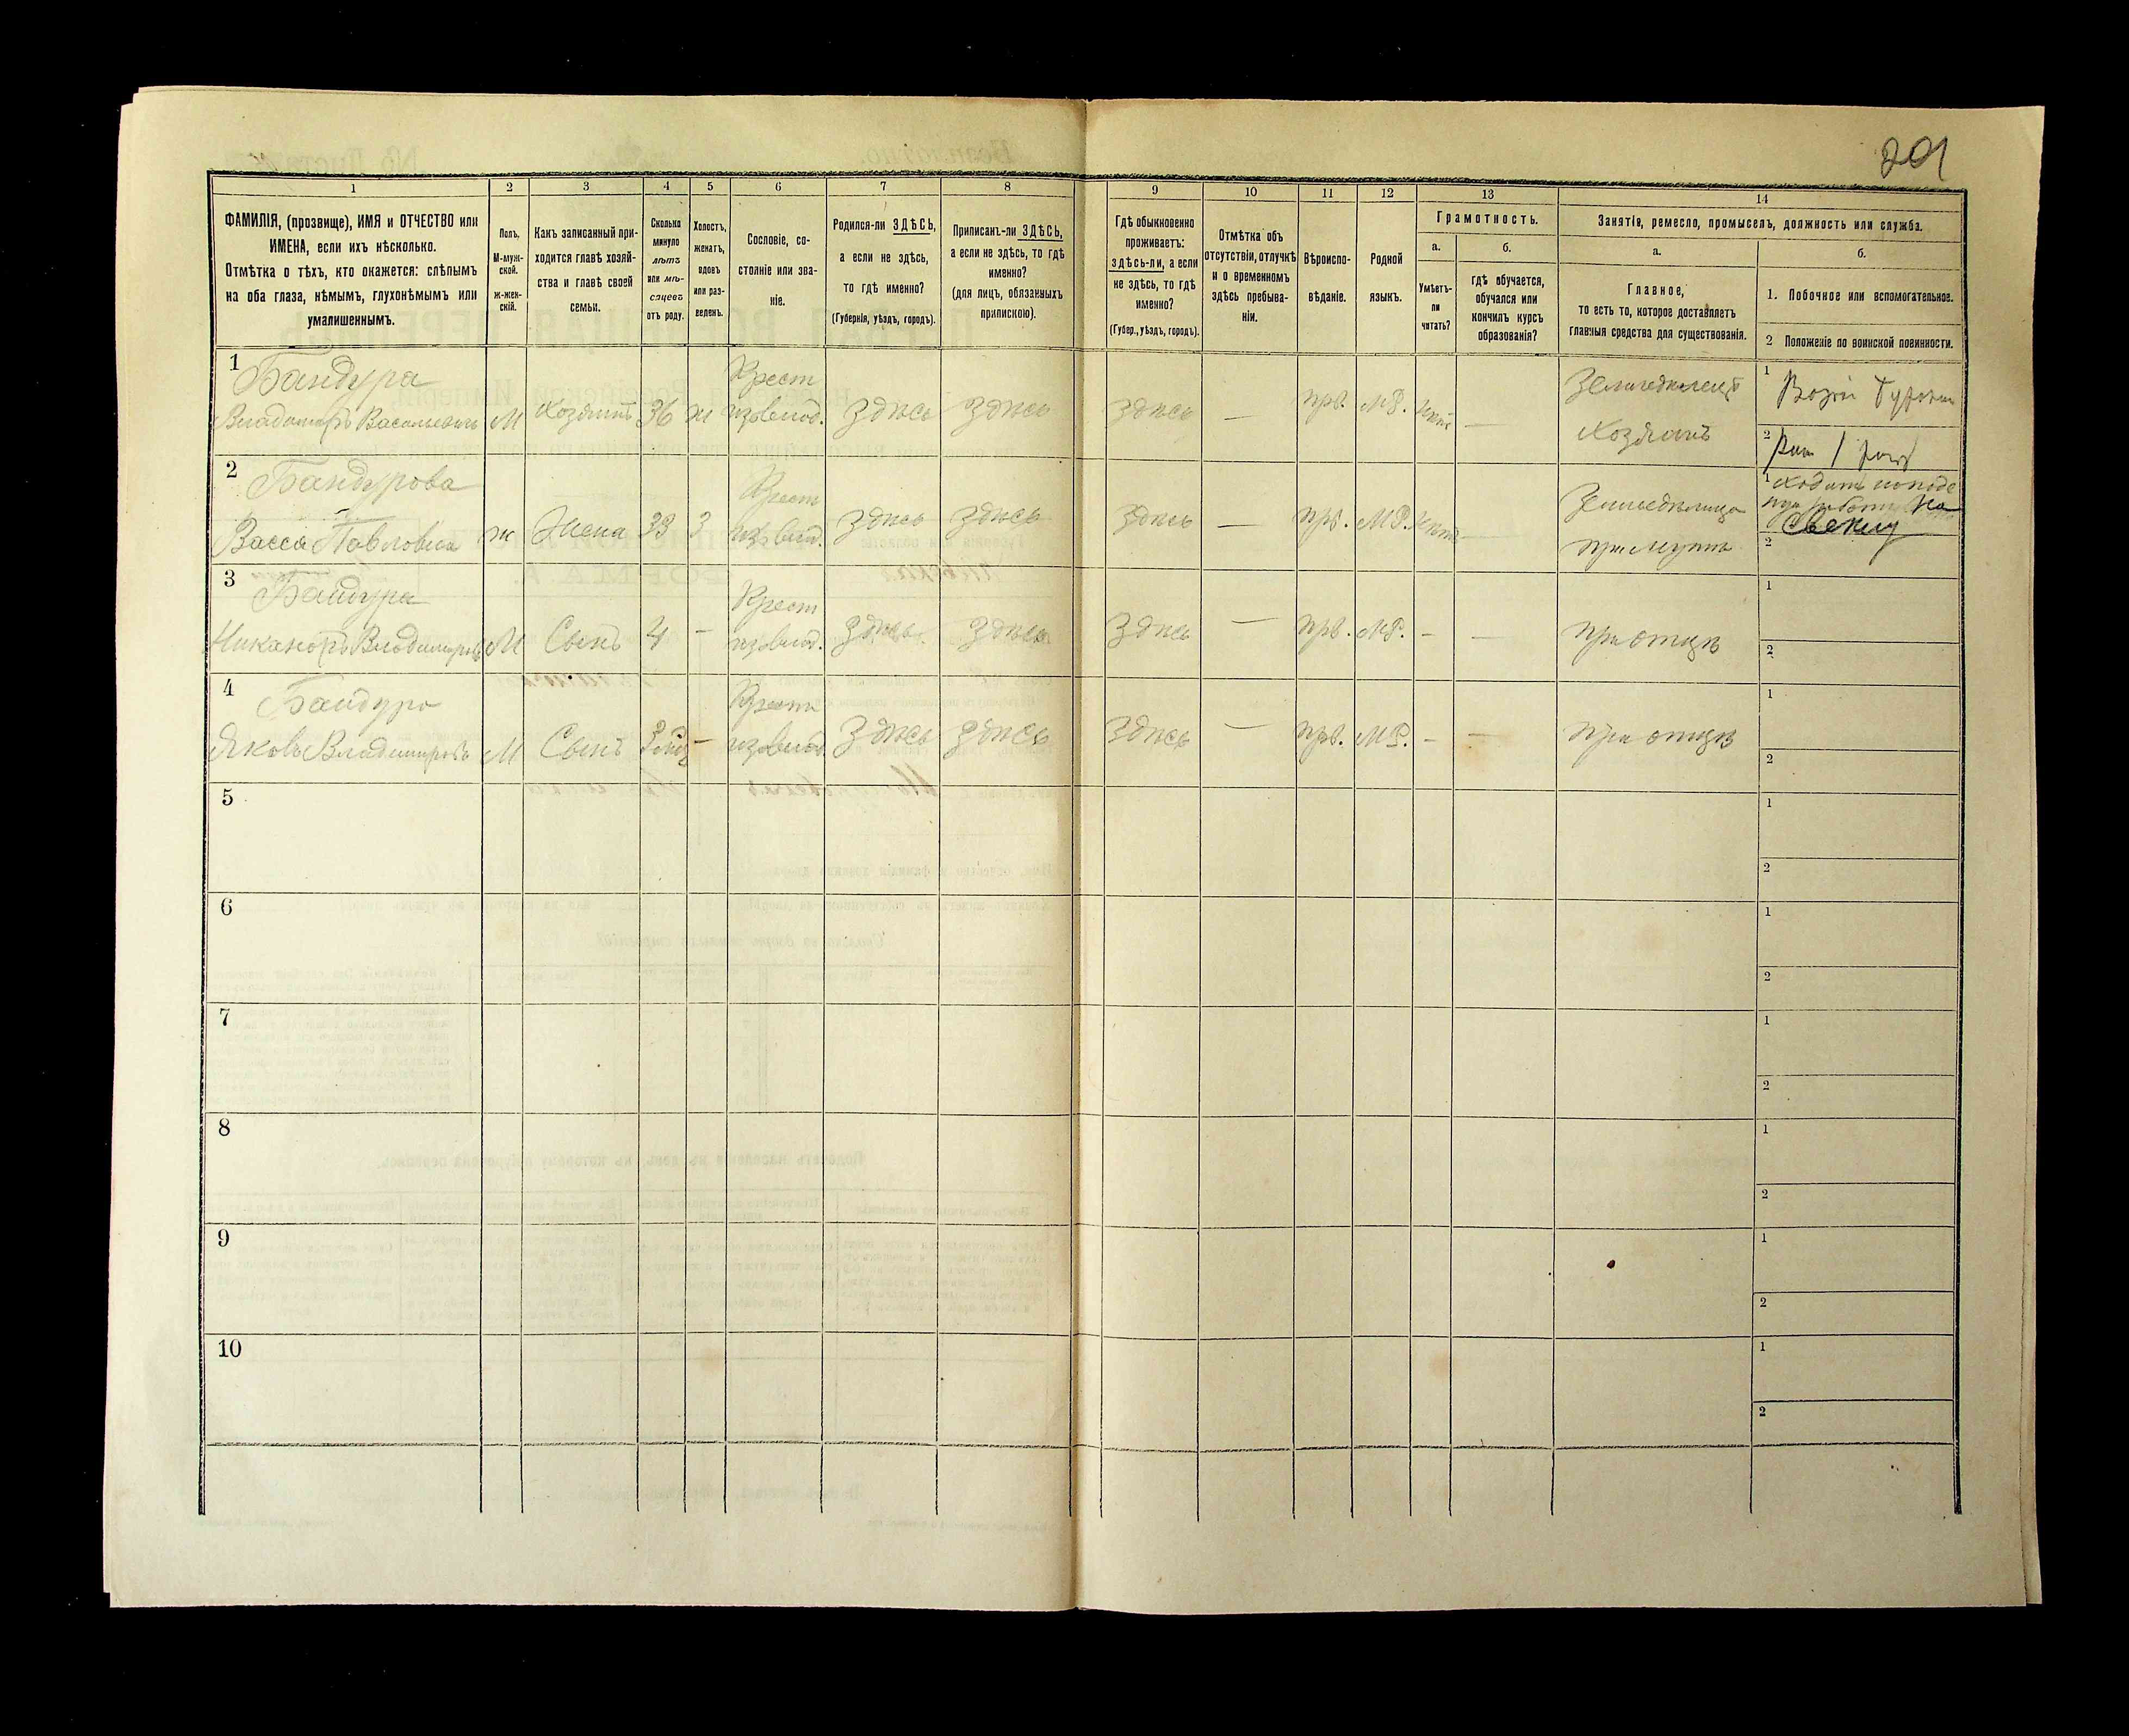 201
1 2 3 4 5 6 7 8 9 10 11 12 13 14
ФАМИЛІЯ, (прозвище), ИМЯ и ОТЧЕСТВО или
ИМЕНА, если ихъ нѣсколько.
Отмѣтка о тѣхъ, кто окажется: слѣпымъ
на оба глаза, нѣмымъ, глухонѣмымъ или
умалишеннымъ.
Полъ.
М-муж-
ской.
ж-жен-
скій.
Какъ записанный при-
ходится главѣ хозяй-
ства и главѣ своей
семьи.
Сколько
минуло
лѣтъ
или мѣ-
сяцевъ
отъ роду.
Холостъ,
женатъ,
вдовъ
или раз-
веденъ.
Сословіе, со-
стояніе или зва-
ніе.
Родился-ли ЗДѢСЬ,
а если не здѣсь,
то гдѣ именно?
(Губернія, уѣздъ, городъ).
Приписанъ-ли ЗДѢСЬ,
а если не здѣсь, то гдѣ
именно?
(для лицъ, обязанныхъ
припискою).
Гдѣ обыкновенно
проживаетъ:
здѣсь-ли, а если
не здѣсь, то гдѣ
именно?
(Губер., уѣздъ, городъ).
Отмѣтка объ
отсутствіи, отлучкѣ
и о временномъ
здѣсь пребыва-
ніи.
Вѣроиспо-
вѣданіе.
Родной
языкъ.
Грамотность.
а.
Умѣетъ-
ли
читать?
б.
гдѣ обучается,
обучался или
кончилъ курсъ
образованія?
Занятія, ремесло, промыселъ, должность или служба.
а.
Главное,
то есть то, которое доставляетъ
главныя средства для существованія.
б.
1. Побочное или вспомогательное.
2 Положеніе по воинской повинности.
1
Бандура
Владиміръ Васильевичъ М Хозяинъ 36 ж Крест
изъ влад. Здѣсь Здѣсь Здѣсь — прв. МР. нѣтъ —
Земледѣлецъ
Хозяинъ
1
2
2
Бандурова
Васса Павловна ж Жена 33 з Крест
изъ влад. Здѣсь Здѣсь Здѣсь — прв. МР. нѣтъ —
Земледѣлица
при мужѣ
1 Ходитъ
на
Свеклу
2
3
Бандура
Никаноръ Владиміровъ М Сынъ 4 - Крест
изъ влад. Здѣсь Здѣсь Здѣсь — прв. МР. - —
при отцѣ
1
2
4
Бандура
Яковъ Владиміровъ М Сынъ - Крест
изъ влад. Здѣсь Здѣсь Здѣсь — прв. МР. - -
при отцѣ
1
2
5
1
2
6
1
2
7
1
2
8
1
2
9
1
2
10
1
2